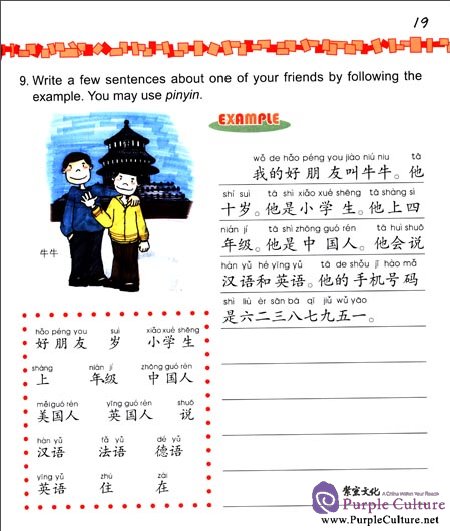 19
9. Write a few sentences about one of your friends by following the
example. You may use pinyin.
EXAMPLE
wǒ de hǎo péng you jiào niú niu tā
我的好朋友叫牛牛。他
shí suì tā shì xiǎo xué shēng tā shàng sì
十岁。他是小学生。他上四
nián jí tā shì zhōng guó rén tā huì shuō
年级。他是中国人。他会说
hàn yǔ hé yīng yǔ tā de shǒu jī hào mǎ
汉语和英语。他的手机号码
shì liù èr sān bā qī jiǔ wǔ yāo
是六二三八七九五一。
牛牛
hǎo péng you suì xiǎo xué shēng
好朋友 岁 小学生
shàng nián jí zhōng guó rén
上 年级 中国人
měi guó rén yīng guó rén shuō
美国人 英国人 说
hàn yǔ fǎ yǔ dé yǔ
汉语 法语 德语
yīng yǔ zhù zài
英语 住 在
紫宝文化 A China Within Your Reach
Purple Culture
www.PurpleCulture.net